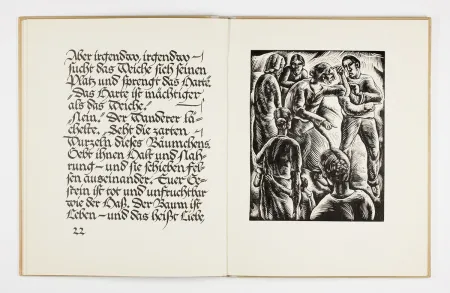 Aber irgendwo, irgendwo –
sucht das Weiche sich seinen
Platz und sprengt das Harte.
Das Harte ist mächtiger
als das Weiche!
Nein! Der Wanderer lä-
chelte. Seht die zarten –
Wurzeln dieses Bäumchens.
Gebt ihnen Halt und Nah-
rung – und sie schieben Fel-
sen auseinander. Euer Ge-
stein ist tot und unfruchtbar
wie der Haß. Der Baum ist
Leben – und das heißt Liebe
22